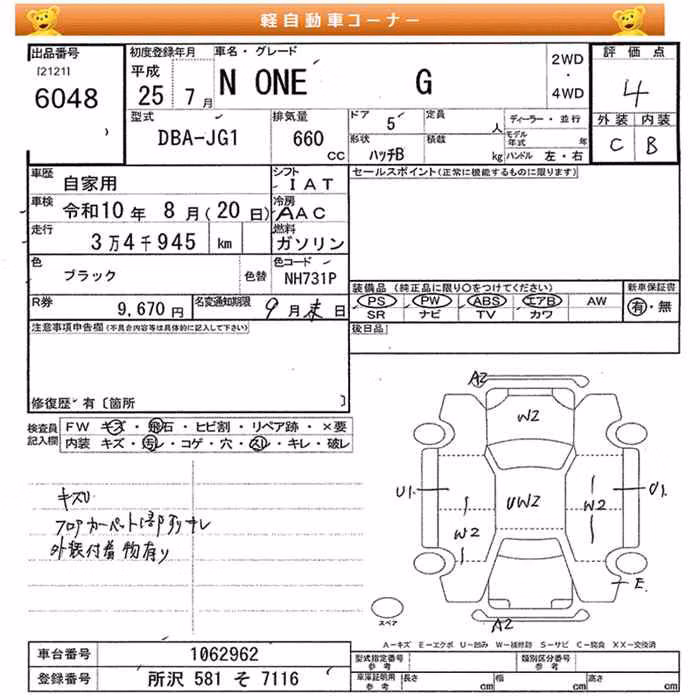 軽自動車コーナー
出品番号
[2121]
6048
初度登録年月
平成
25 7月
車名・グレード
N ONE G
2WD
・
4WD
評価点
4
外装 内装
C B
型式
DBA-JG1
排気量
660
CC
ドア 5
定員
人
形状
ハッチB
積載
kg
ディーラー・並行
モデル年式
年
ハンドル 左・右
車歴
自家用
シフト
IAT
車検
令和10年 8月(20日)
冷房
AAC
走行
3万4千945 km
燃料
ガソリン
色
ブラック
色替
色コード
NH731P
R券
9,670円
名変通知期限
9月末日
セールスポイント(正常に機能するものに限ります)
装備品 (純正品に限り〇をつけてください)
PS PW ABS エアB AW
SR ナビ TV カワ
新車保証書
有・無
後日品
注意事項申告欄(不具合内容等は具体的に記入して下さい)
修復歴・有〔箇所 〕
検査員
記入欄
FW キズ・飛石・ヒビ割・リペア跡・×要
内装 キズ・汚レ・コゲ・穴・スレ・キレ・破レ
キズU
フロアカーペット1部スリキレ
外装付着物有り
A2
W2
U1
UW2
W2
U1
W2
E
A2
スペア
A-キズ E-エクボ U-凹み W-補修跡 S-サビ C-腐食 XX-交換済
車台番号
1062962
登録番号
所沢 581 そ 7116
型式指定番号
参考
類別区分番号
参考
車庫証明用
参考
長さ
cm
幅
cm
高さ
cm